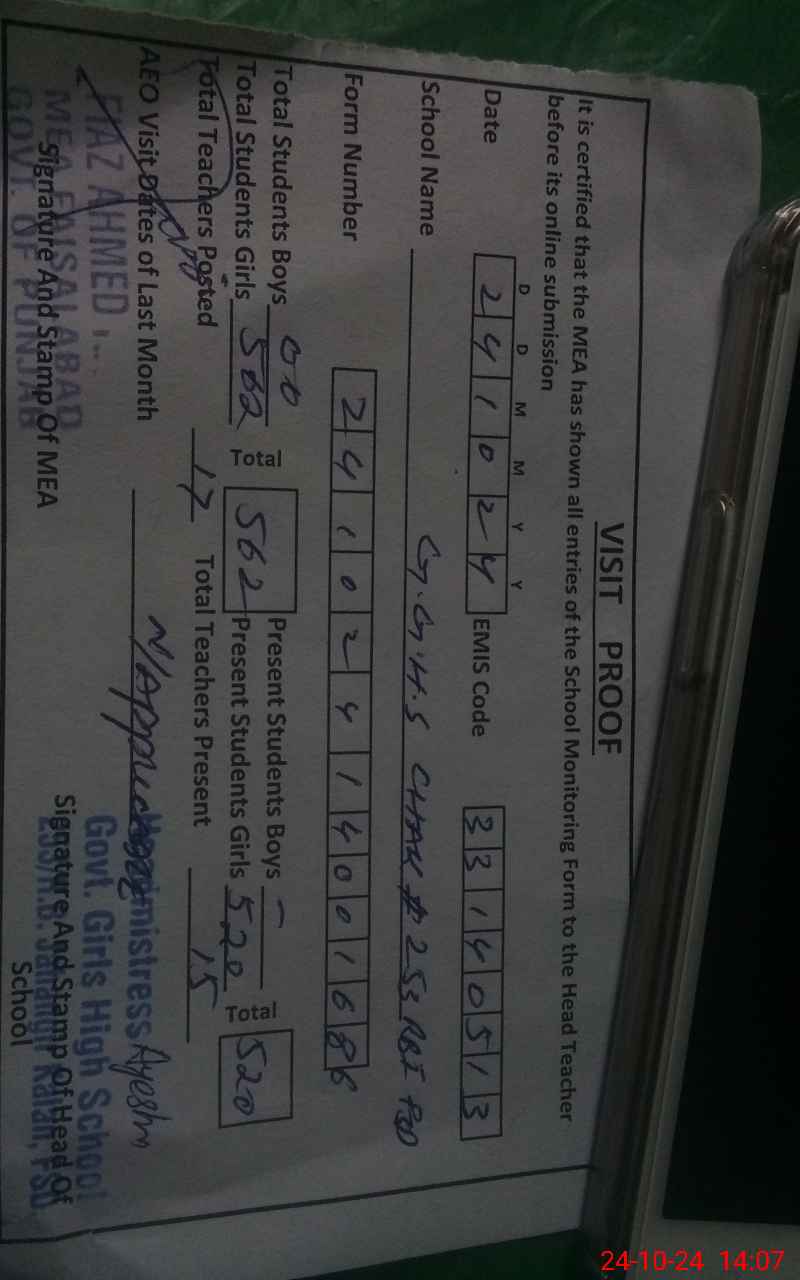 VISIT PROOF
It is certified that the MEA has shown all entries of the School Monitoring Form to the Head Teacher
before its online submission
D D M M Y Y
Date 2 4 1 0 2 4 EMIS Code 3 3 1 4 0 5 1 3
School Name G.G.H.S CHAK # 253 RB
Form Number 2 4 1 0 2 4 1 4 0 0 1 6 8 6
Total Students Boys 00 Present Students Boys –
Total Students Girls 562 Total 562 Present Students Girls 520 Total 520
Total Teachers Posted 17 Total Teachers Present 15
AEO Visit Dates of Last Month N/A
FIAZ AHMED
MEA FAISALABAD
GOVT. OF PUNJAB
Signature And Stamp Of MEA
Ayesha
Govt. Girls High School
Signature And Stamp Of Head Of
School
24-10-24 14:07